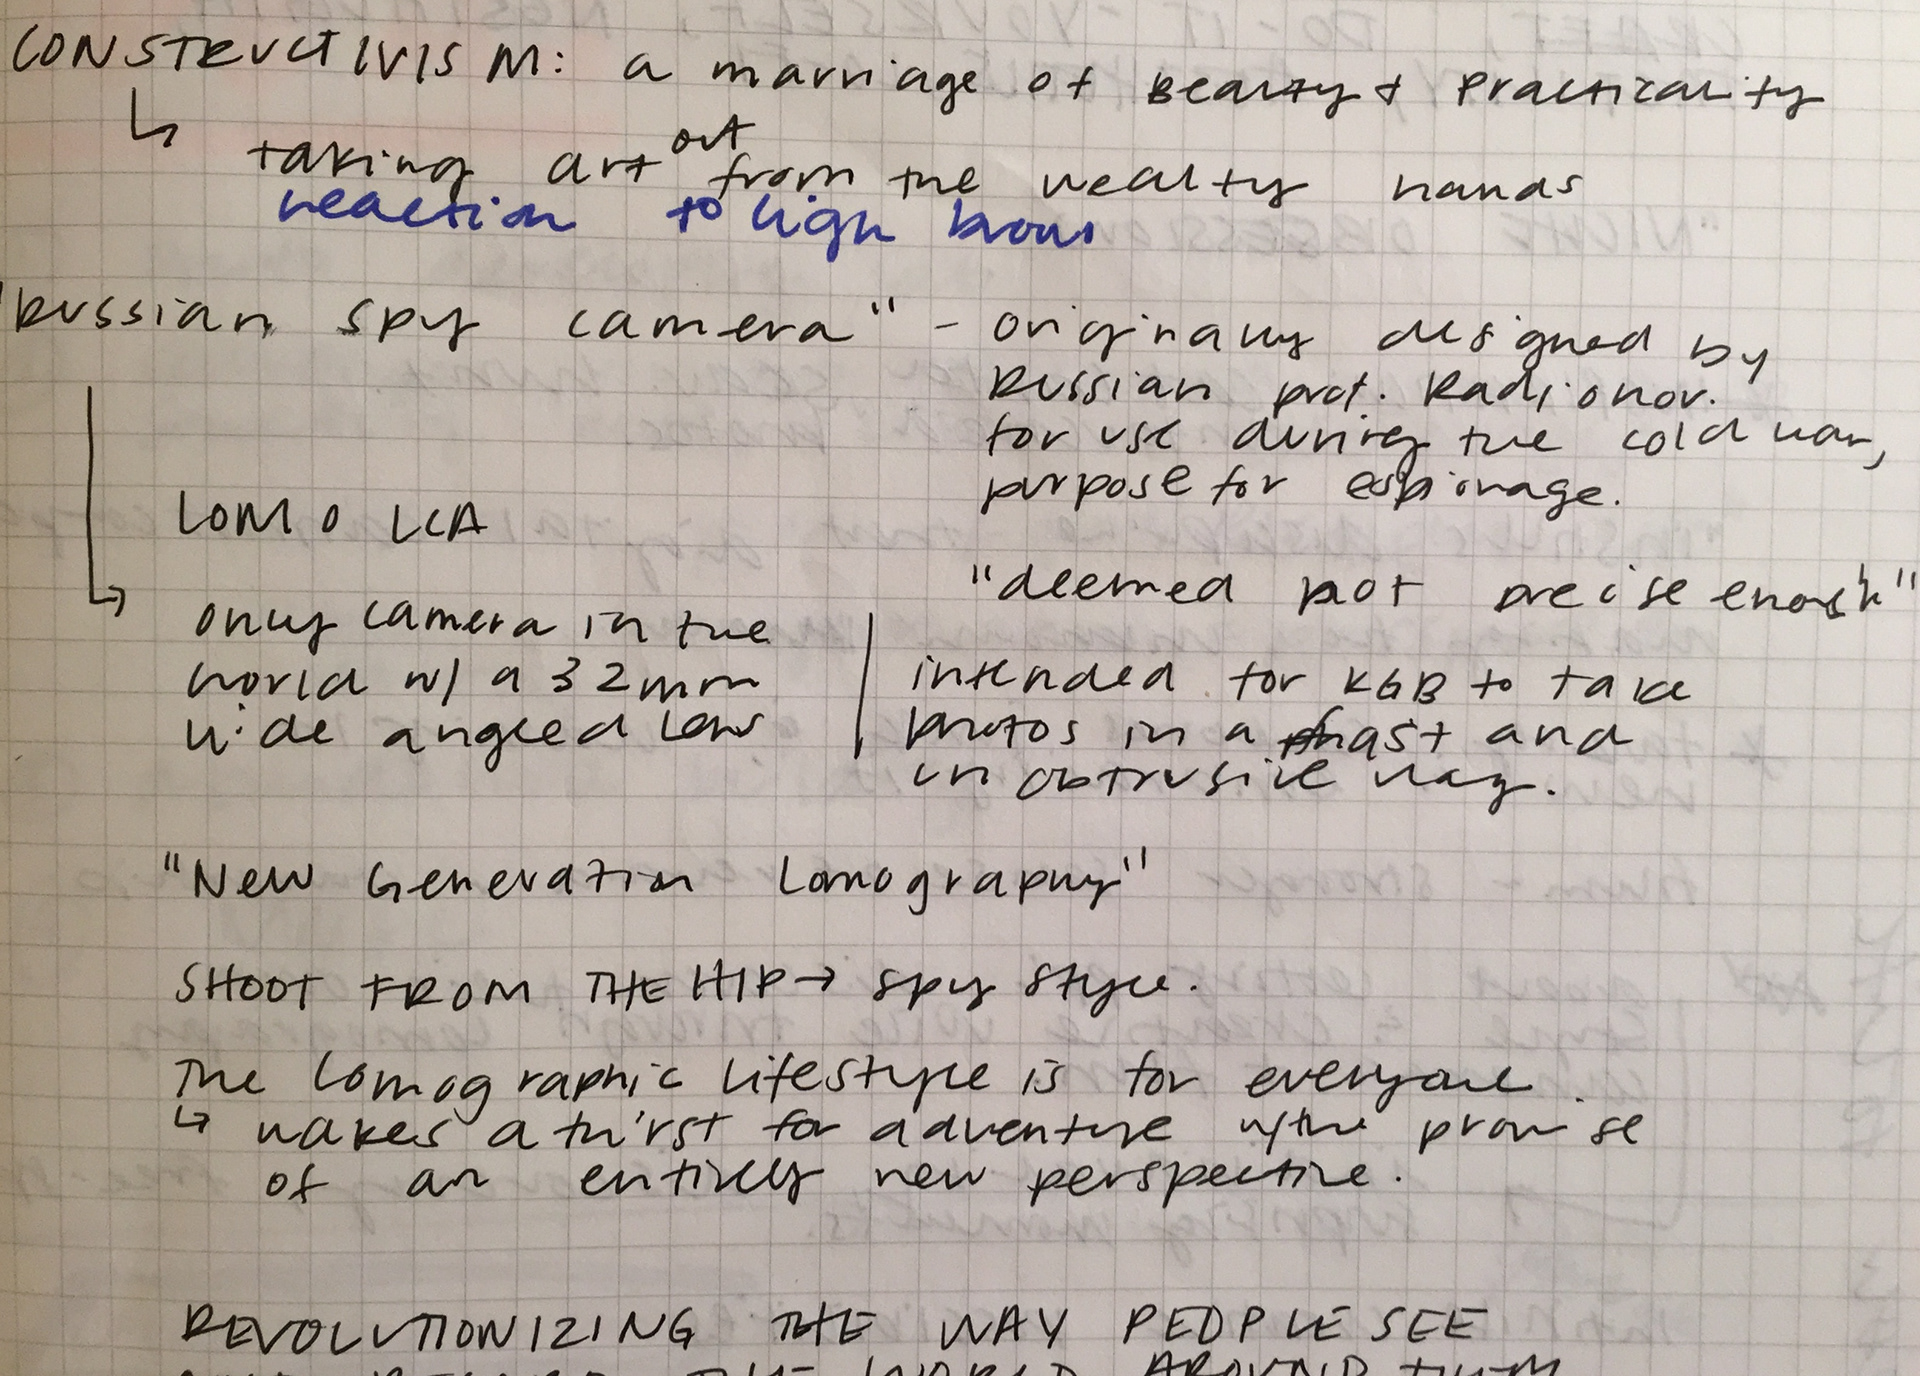 CONSTRUCTIVISM: a marriage of Beauty + Practicality
↳ taking art out from the wealty hands
reaction to high brow
"Russian spy camera" - originally designed by
Russian prof. Radionov.
for use during the cold war,
purpose for espionage.
LOMO LCA
"deemed not precise enough"
↳ only camera in the
world w/ a 32mm
wide angled lens
intended for KGB to take
photos in a fast and
unobtrusive way.
"New Generation Lomography"
SHOOT FROM THE HIP → spy style.
The Lomographic Lifestyle is for everyone.
↳ wakes a thirst for adventure w/the promise
of an entirely new perspective.
REVOLUTIONIZING THE WAY PEOPLE SEE
THE WORLD AROUND THEM